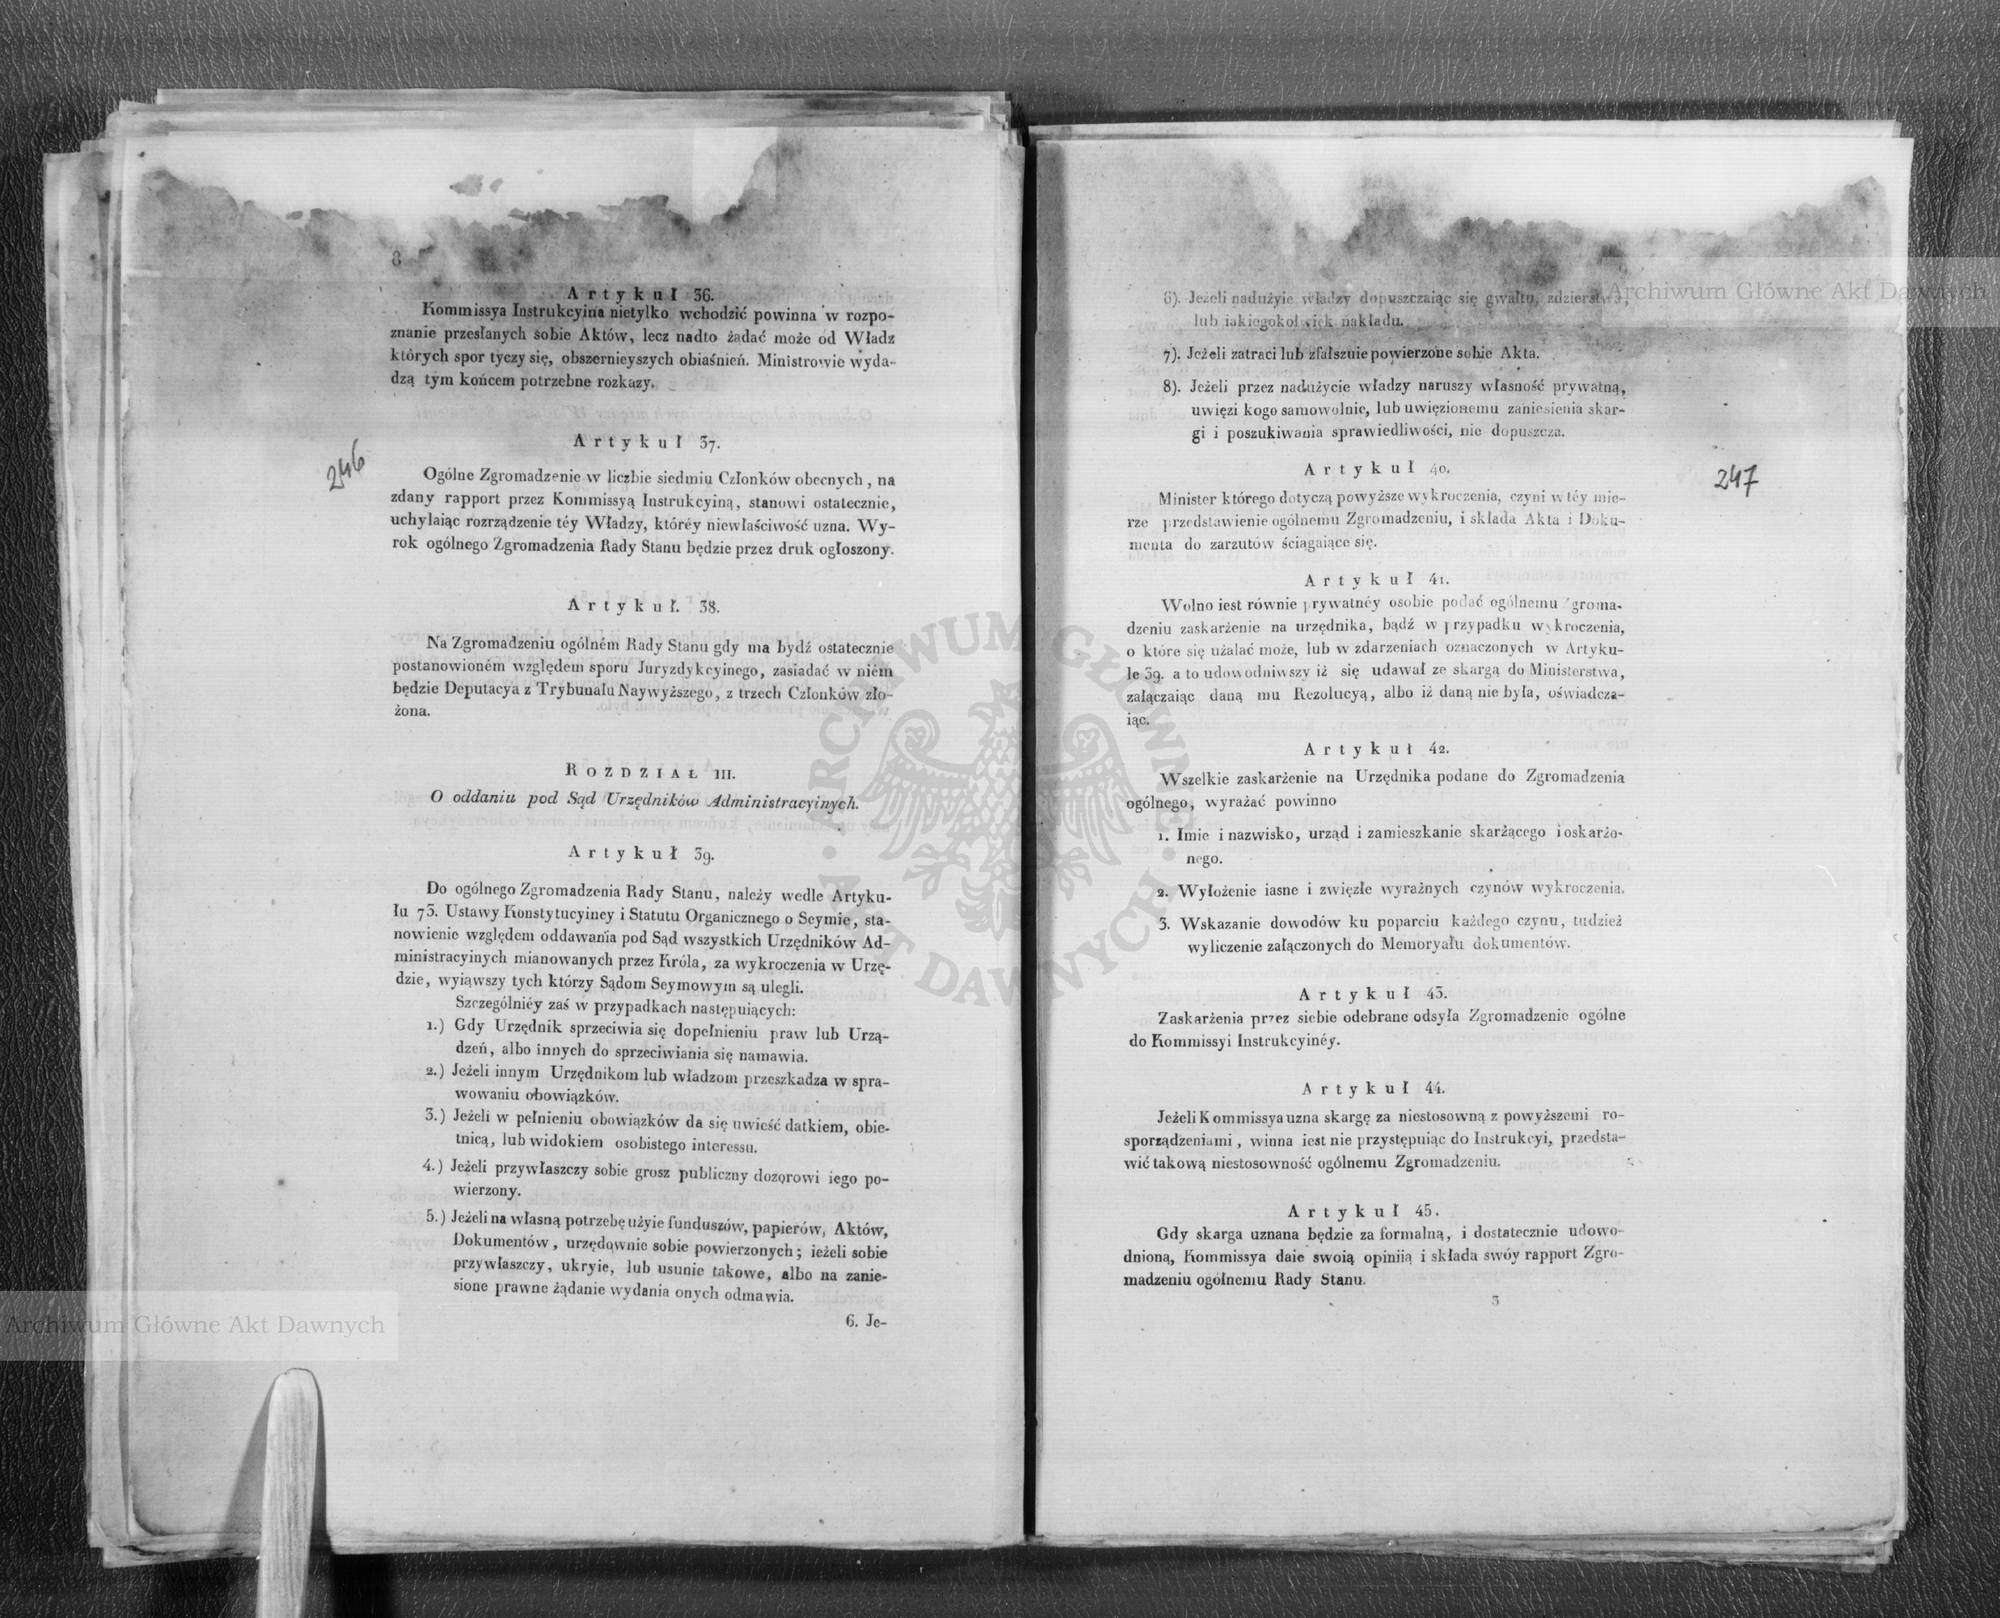 8
Artykuł 36.
Kommissya Instrukcyina nietylko wchodzić powinna w rozpo-
znanie przesłanych sobie Aktów, lecz nadto żadać może od Władz
których spor tyczy się, obszernieyszych obiaśnień. Ministrowie wyda-
dzą tym końcem potrzebne rozkazy.
Artykuł 37.
246
Ogólne Zgromadzenie w liczbie siedmiu Członków obecnych, na
zdany rapport przez Kommissyą Instrukcyiną, stanowi ostatecznie,
uchylaiąc rozrządzenie téy Władzy, któréy niewłaściwość uzna. Wy-
rok ogólnego Zgromadzenia Rady Stanu będzie przez druk ogłoszony.
Artykuł. 38.
Na Zgromadzeniu ogólném Rady Stanu gdy ma bydź ostatecznie
postanowioném względem sporu Juryzdykcyinego, zasiadać w niém
będzie Deputacya z Trybunału Naywyższego, z trzech Członków zło-
żona.
ROZDZIAŁ III.
O oddaniu pod Sąd Urzędników Administracyinych.
Artykuł 39.
Do ogólnego Zgromadzenia Rady Stanu, należy wedle Artyku-
łu 73. Ustawy Konstytucyiney i Statutu Organicznego o Seymie, sta-
nowienie względem oddawania pod Sąd wszystkich Urzędników Ad-
ministracyinych mianowanych przez Króla, za wykroczenia w Urzę-
dzie, wyiąwszy tych którzy Sądom Seymowym są ulegli.
Szczególniéy zaś w przypadkach następuiących:
1.) Gdy Urzędnik sprzeciwia się dopełnieniu praw lub Urzą-
dzeń, albo innych do sprzeciwiania się namawia.
2.) Jeżeli innym Urzędnikom lub władzom przeszkadza w spra-
wowaniu obowiązków.
3.) Jeżeli w pełnieniu obowiązków da się uwieść datkiem, obie-
tnicą, lub widokiem osobistego interessu.
4.) Jeżeli przywłaszczy sobie grosz publiczny dozorowi iego po-
wierzony.
5.) Jeżeli na własną potrzebę użyie funduszów, papierów, Aktów,
Dokumentów, urzędownie sobie powierzonych; ieżeli sobie
przywłaszczy, ukryie, lub usunie takowe, albo na zanie-
sione prawne żądanie wydania onych odmawia.
6. Je-
6). Jeżeli nadużyie władzy dopuszczaiąc się gwałtu, zdzierstwa,
lub iakiegokolwiek nakładu.
7). Jeżeli zatraci lub zfałszuie powierzone sobie Akta.
8). Jeżeli przez nadużycie władzy naruszy własność prywatną,
uwięzi kogo samowolnie, lub uwięzionemu zaniesienia skar-
gi i poszukiwania sprawiedliwości, nie dopuszcza.
Artykuł 40.
247
Minister którego dotyczą powyższe wykroczenia, czyni w téy mie-
rze przedstawienie ogólnemu Zgromadzeniu, i składa Akta i Doku-
menta do zarzutów ściągaiące się.
Artykuł 41.
Wolno iest równie prywatnéy osobie podać ogólnemu Zgroma-
dzeniu zaskarżenie na urzędnika, bądź w przypadku wykroczenia,
o które się użalać może, lub w zdarzeniach oznaczonych w Artyku-
le 39. a to udowodniwszy iż się udawał ze skargą do Ministerstwa,
załączaiąc daną mu Rezolucyą, albo iż daną nie była, oświadcza-
iąc.
Artykuł 42.
Wszelkie zaskarżenie na Urzędnika podane do Zgromadzenia
ogólnego, wyrażać powinno
1. Imie i nazwisko, urząd i zamieszkanie skarżącego i oskarżo-
nego.
2. Wyłożenie iasne i zwięzłe wyraźnych czynów wykroczenia.
3. Wskazanie dowodów ku poparciu każdego czynu, tudzież
wyliczenie załączonych do Memoryału dokumentów.
Artykuł 43.
Zaskarżenia przez siebie odebrane odsyła Zgromadzenie ogólne
do Kommissyi Instrukcyinéy.
Artykuł 44.
Jeżeli Kommissya uzna skargę za niestosowną z powyższemi ro-
sporządzeniami, winna iest nie przystępuiąc do Instrukcyi, przedsta-
wić takową niestosowność ogólnemu Zgromadzeniu.
Artykuł 45.
Gdy skarga uznana będzie za formalną, i dostatecznie udowo-
dnioną, Kommissya daie swoią opiniią i składa swóy rapport Zgro-
madzeniu ogólnemu Rady Stanu.
3
Archiwum Główne Akt Dawnych
Archiwum Główne Akt Dawnych
ARCHIWUM GŁÓWNE AKT DAWNYCH